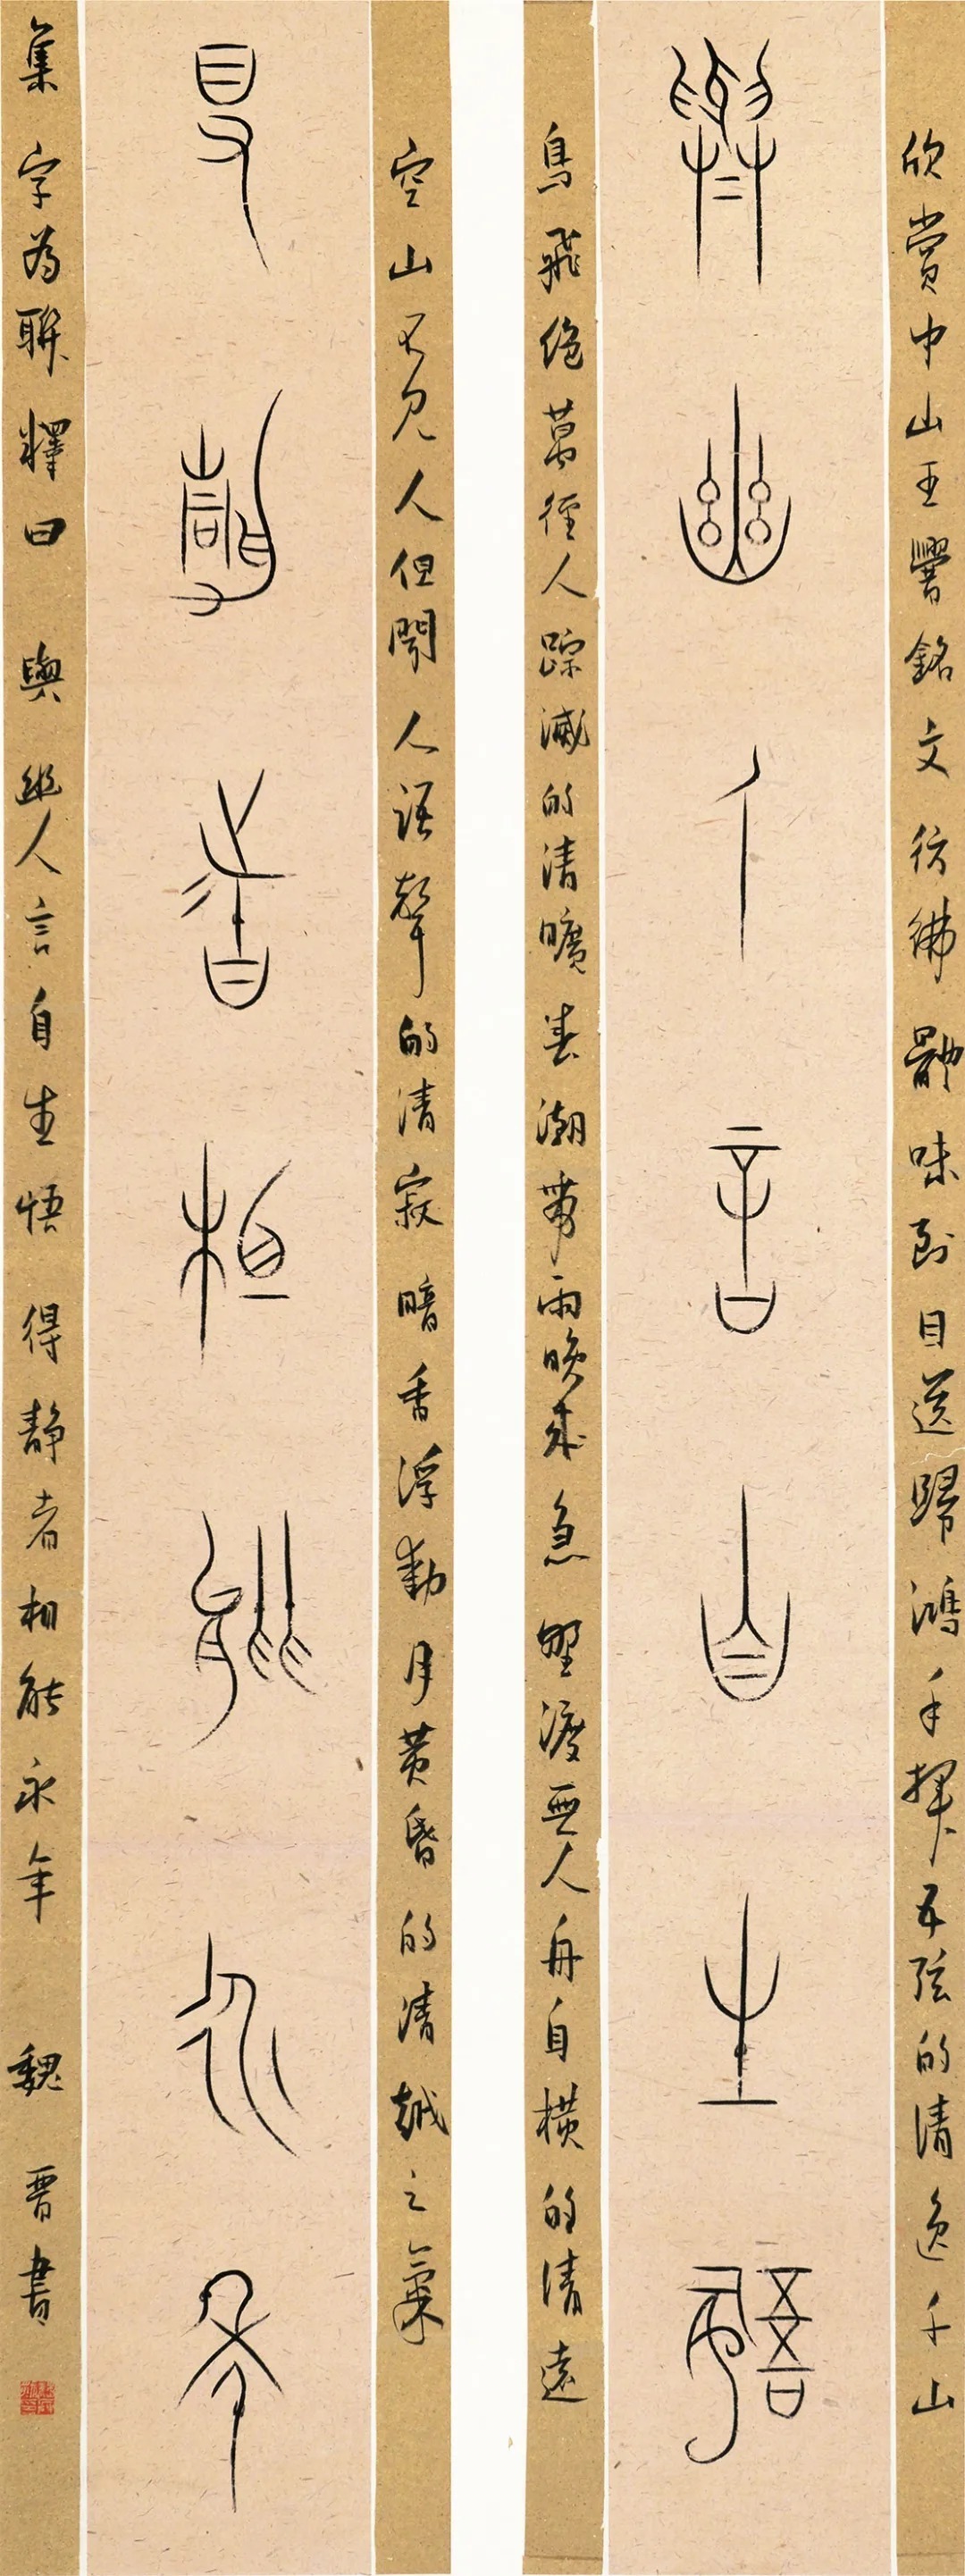 欣賞中山王響銘文彷彿體味到目送歸鴻手揮五弦的清逸千山
與幽人言自生悟
鳥飛絕萬徑人踪滅的清曠春潮帶雨晚來急野渡無人舟自橫的清遠
空山不見人但聞人語聲的清寂暗香浮動月黃昏的清越之氣
得靜者相能永年
集字為聯釋曰與幽人言自生悟得靜者相能永年魏晋書